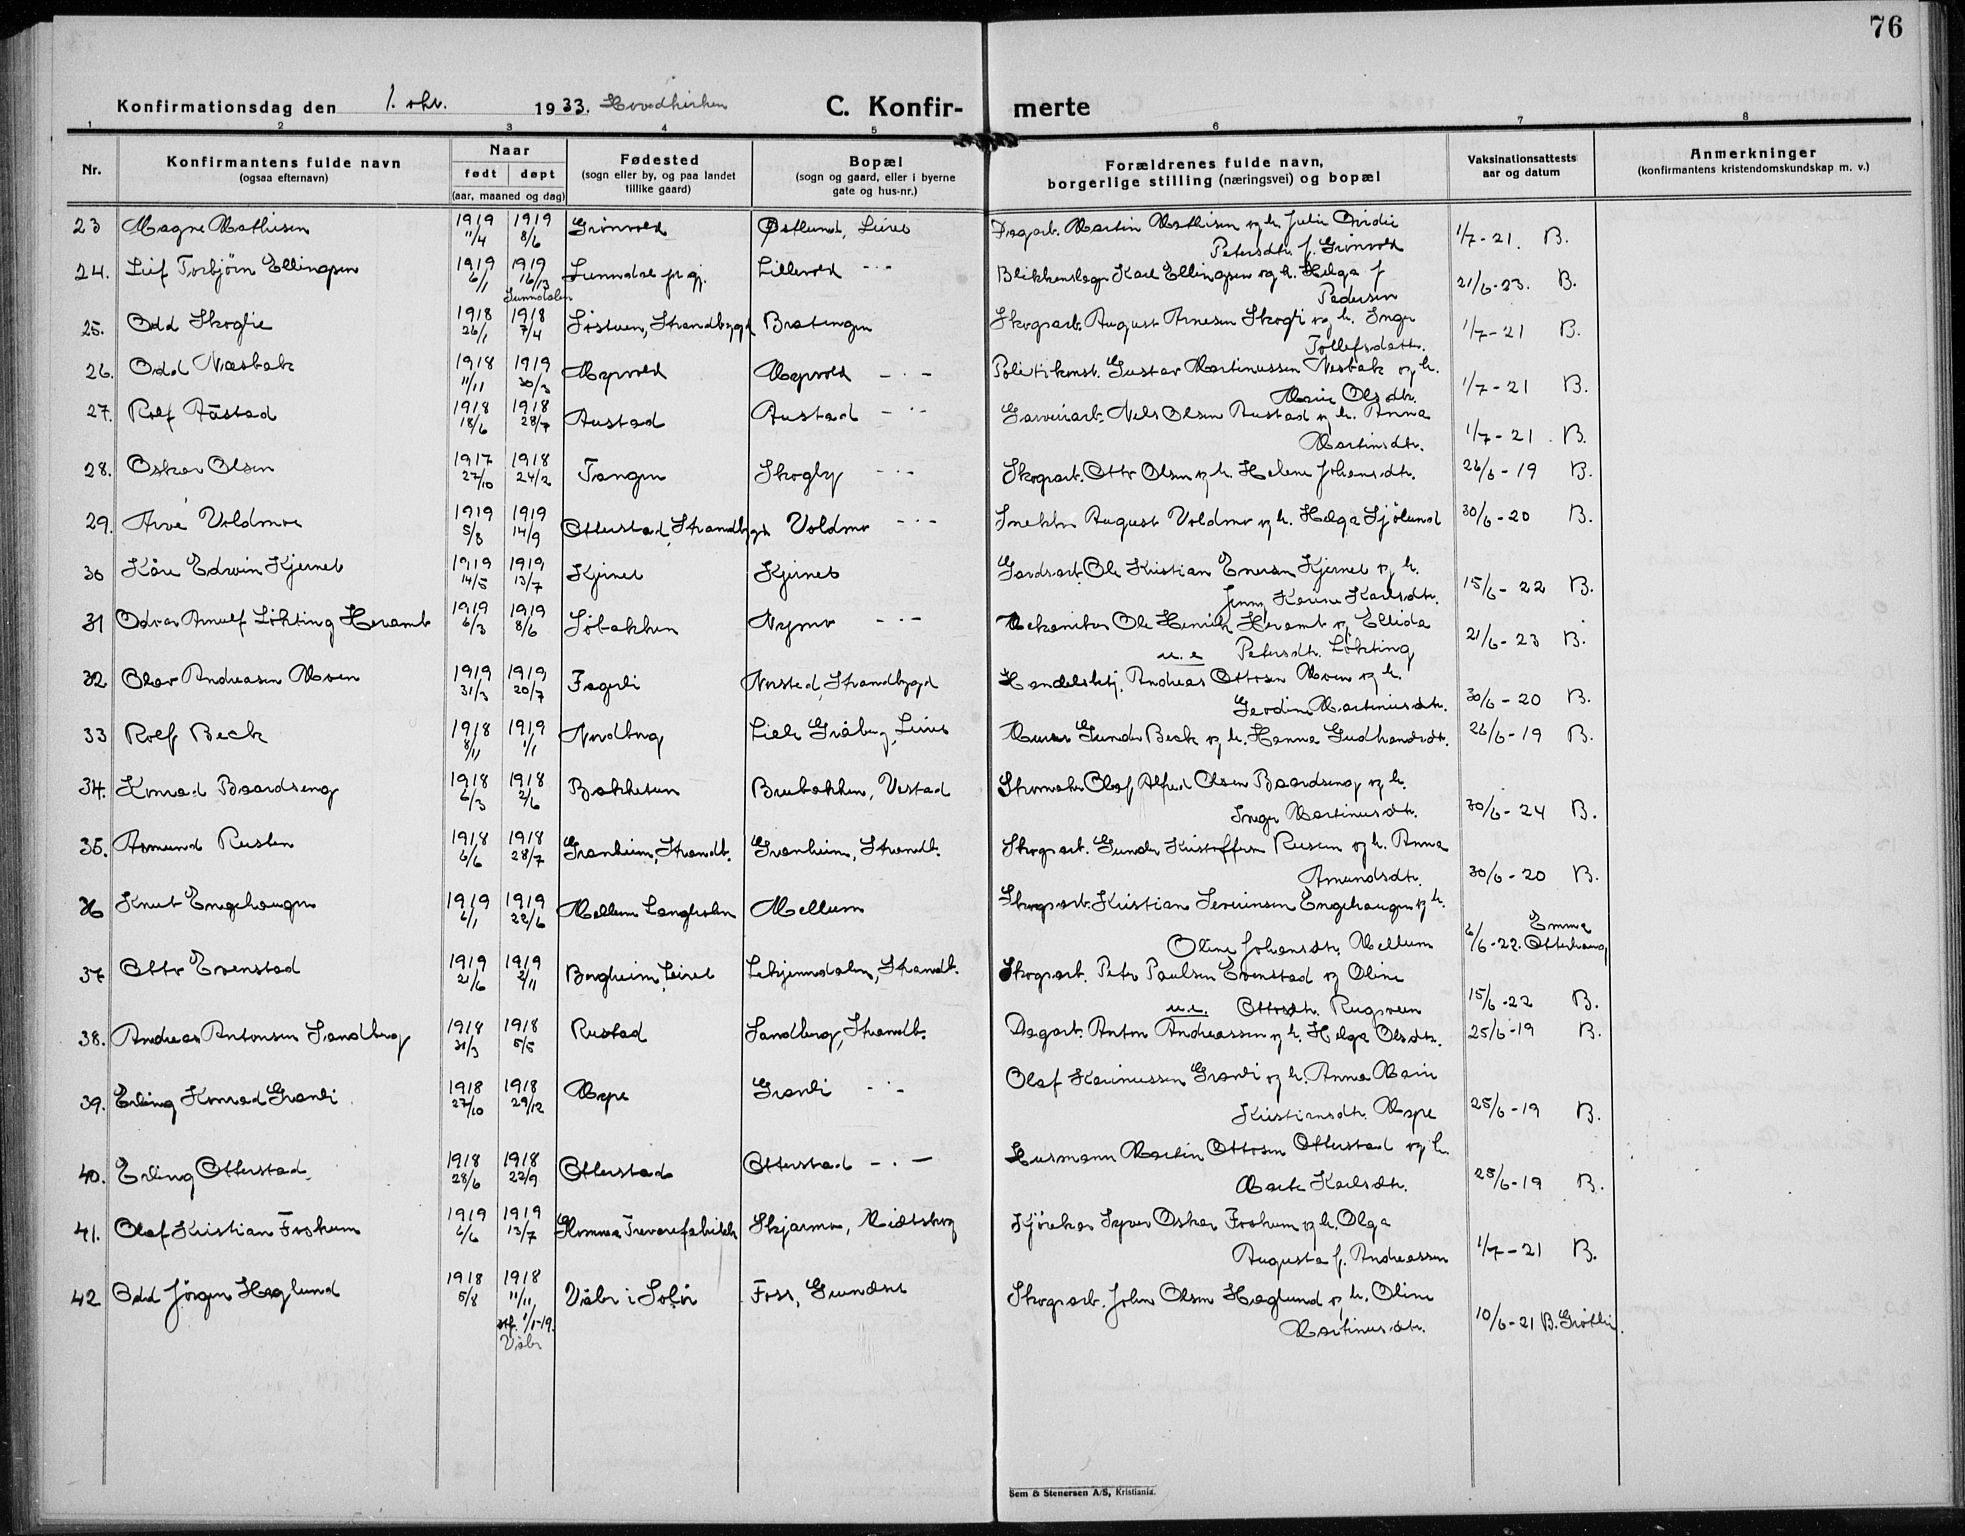 76
Konfirmationsdag den 1. okt. 1933. Hovedkirken C. Konfir- merte
1 2 3 4 5 6 7 8
Nr. Konfirmantens fulde navn (ogsaa efternavn) Naar født døpt (aar, maaned og dag) Fødested (sogn eller by, og paa landet tillike gaard) Bopæl (sogn og gaard, eller i byerne gate og hus-nr.) Forældrenes fulde navn, borgerlige stilling (næringsvei) og bopæl Vaksinationsattests aar og datum Anmerkninger (konfirmantens kristendomskundskap m. v.)
23 Magne Mathisen 1919 11/4 1919 8/6 Grønvold Østlund, Leiret Dagarb. Martin Mathisen og h. Julie
Petersdtr. f. Grønvold 1/7-21. B.
24. Leif Torbjørn Ellingsen 1919 6/1 1919 16/3 Sunndalen Sunndal pr gj. Lillevold -"- Blikkenslager Karl Ellingsen og h. Helga f
Pedersen 21/6-23. B.
25. Odd Skoglie 1918 26/1 1918 7/4 Søstuen, Strandbygd Bratengen Skogsarb. August Arnesen Skogli og h. Inger
Tollefsdatter. 1/7-21 B.
26. Odd Næsbak 1918 11/11 1919 30/3 Myrvold Myrvold -"- Politikonst. Gustav Martinussen Nesbak og h.
Marie Olsdtr. 1/7-21 B.
27. Rolf Aastad 1918 18/6 1918 28/7 Austad Austad -"- Garveriarb. Nels Olsen Austad og h. Anna
Martinsdtr. 1/7-21. B.
28. Oskar Olsen 1917 27/10 1918 24/2 Tangen Skogly -"- Skogsarb. Otto Olsen og h. Helene Johansdtr. 26/6-19 B.
29. Arve Voldmoe 1919 5/8 1919 14/9 Otterstad, Strandbygd Voldmo -"- Snekker August Voldmo og h. Helga Sjölund 30/6-20 B.
30 Kåre Edvin Kjernet 1919 14/5 1919 13/7 Kjernet Kjernet Gardsarb. Ole Kristian Enersen Kjernet og h.
Jenny Karine Karlsdtr. 15/6-22 B.
31 Odvar Arnulf Løkting Heramb 1919 6/3 1919 8/6 Søbakken Nymo -"- Mekaniker Ole Henrik Heramb og Ellida
u.e. Petersdtr. Løkting 21/6-23 B.
32 Olav Andreasen Moen 1919 31/3 1919 20/7 Fagerli Norsted, Strandbygd Handelsbetj. Andreas Ottosen Moen og h.
Gerdine Martinusdtr. 30/6-20 B.
33 Rolf Beck 1918 8/11 1919 1/1 Nordberg Lille Gråberg, Leiret Murer Gunder Beck og h. Hanna Gudbrandsdtr. 26/6-19 B.
34. Konrad Baardseng 1918 6/3 1918 2/6 Bakketun Brubakken, Vestad Skomaker Olaf Alfred Olsen Baardseng og h.
Inger Martinusdtr. 30/6-24 B.
35. Asmund Rusten 1918 6/6 1918 28/7 Granheim, Strandb. Granheim, Strandb. Skogsarb. Gunder Kristoffersen og h. Anna
Amundsdtr. 30/6-20 B.
36 Knut Engehaugen 1919 6/1 1919 22/6 Mellum Langholen Mellum Skogsarb. Kristian Severinsen Engehaugen og h.
Oline Johansdtr. Mellum 6/6-22. Emma Otterhaug
37 Otto Evenstad 1919 21/6 1919 2/11 Borgheim, Leiret Lekjenndalen, Strandb. Skogsarb. Peter Paulsen Evenstad og Oline
u.e. Ottosdtr. Rugsveen 15/6-22 B.
38. Andreas Antonsen Sandberg 1918 31/3 1918 5/5 Rustad Sandberg, Strandb. Dagarb. Anton Andreassen og h. Helga Olsdtr. 25/6-19 B.
39. Erling Konrad Granli 1918 27/10 1918 29/12 Mype Granli -"- Olaf Karinussen Granli og h. Anna Marie
Kristiansdtr. Mype 25/6-19 B.
40. Erling Otterstad 1918 28/6 1918 22/9 Otterstad Otterstad -"- Husmann Martin Ottosen Otterstad og h.
Marte Karlsdtr. 25/6-19 B.
41. Olaf Kristian Froshum 1919 6/6 1919 13/7 Glomma Trevarefabrikk Skjærmo, Midtskog Kjørekar Syver Oskar Froshum og h. Olga
Augusta f. Andreassen 1/7-21 B.
42 Odd Jörgen Haglund 1918 5/8 1918 11/11 stf. 1/1-19. Våler Våler i Solør Foss, Grundset Skogsarb. John Olsen Haglund og h. Oline
Martinusdtr. 10/6-21 B. Grøtlie.
Sem & Stenersen A/S, Kristiania.